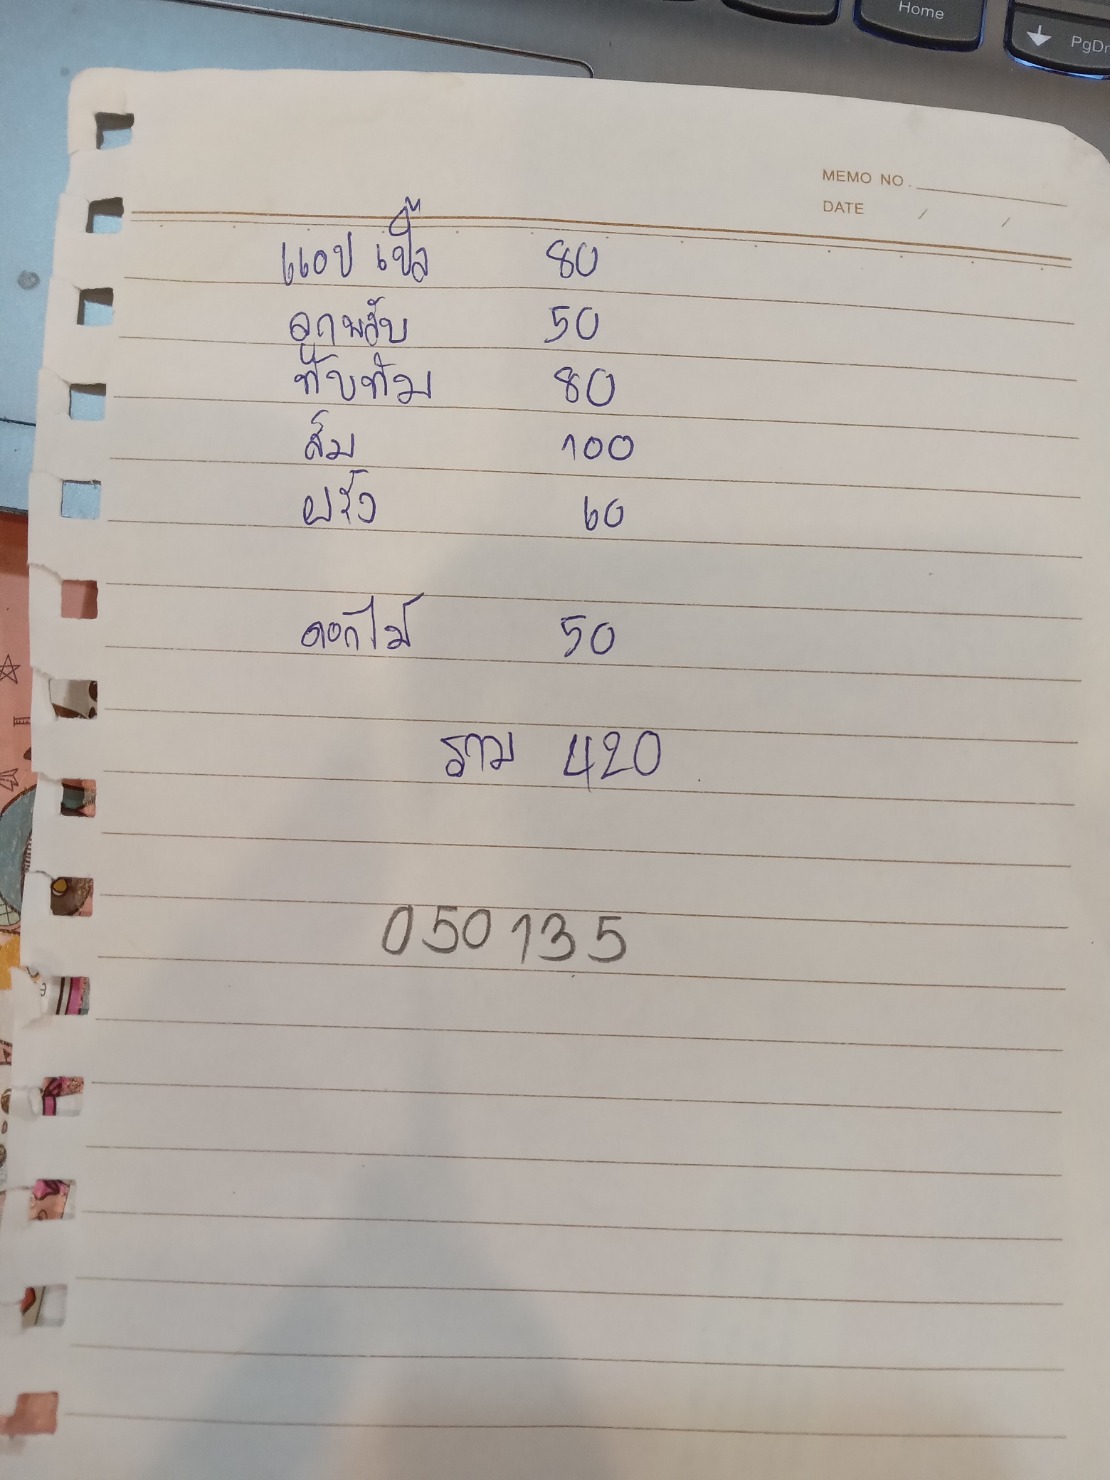 Home
PgDn
MEMO NO.
DATE / /
แอปเปิ้ล 80
ลูกพลับ 50
ทับทิม 80
ส้ม 100
ฝรั่ง 60
ดอกไม้ 50
รวม 420
050135